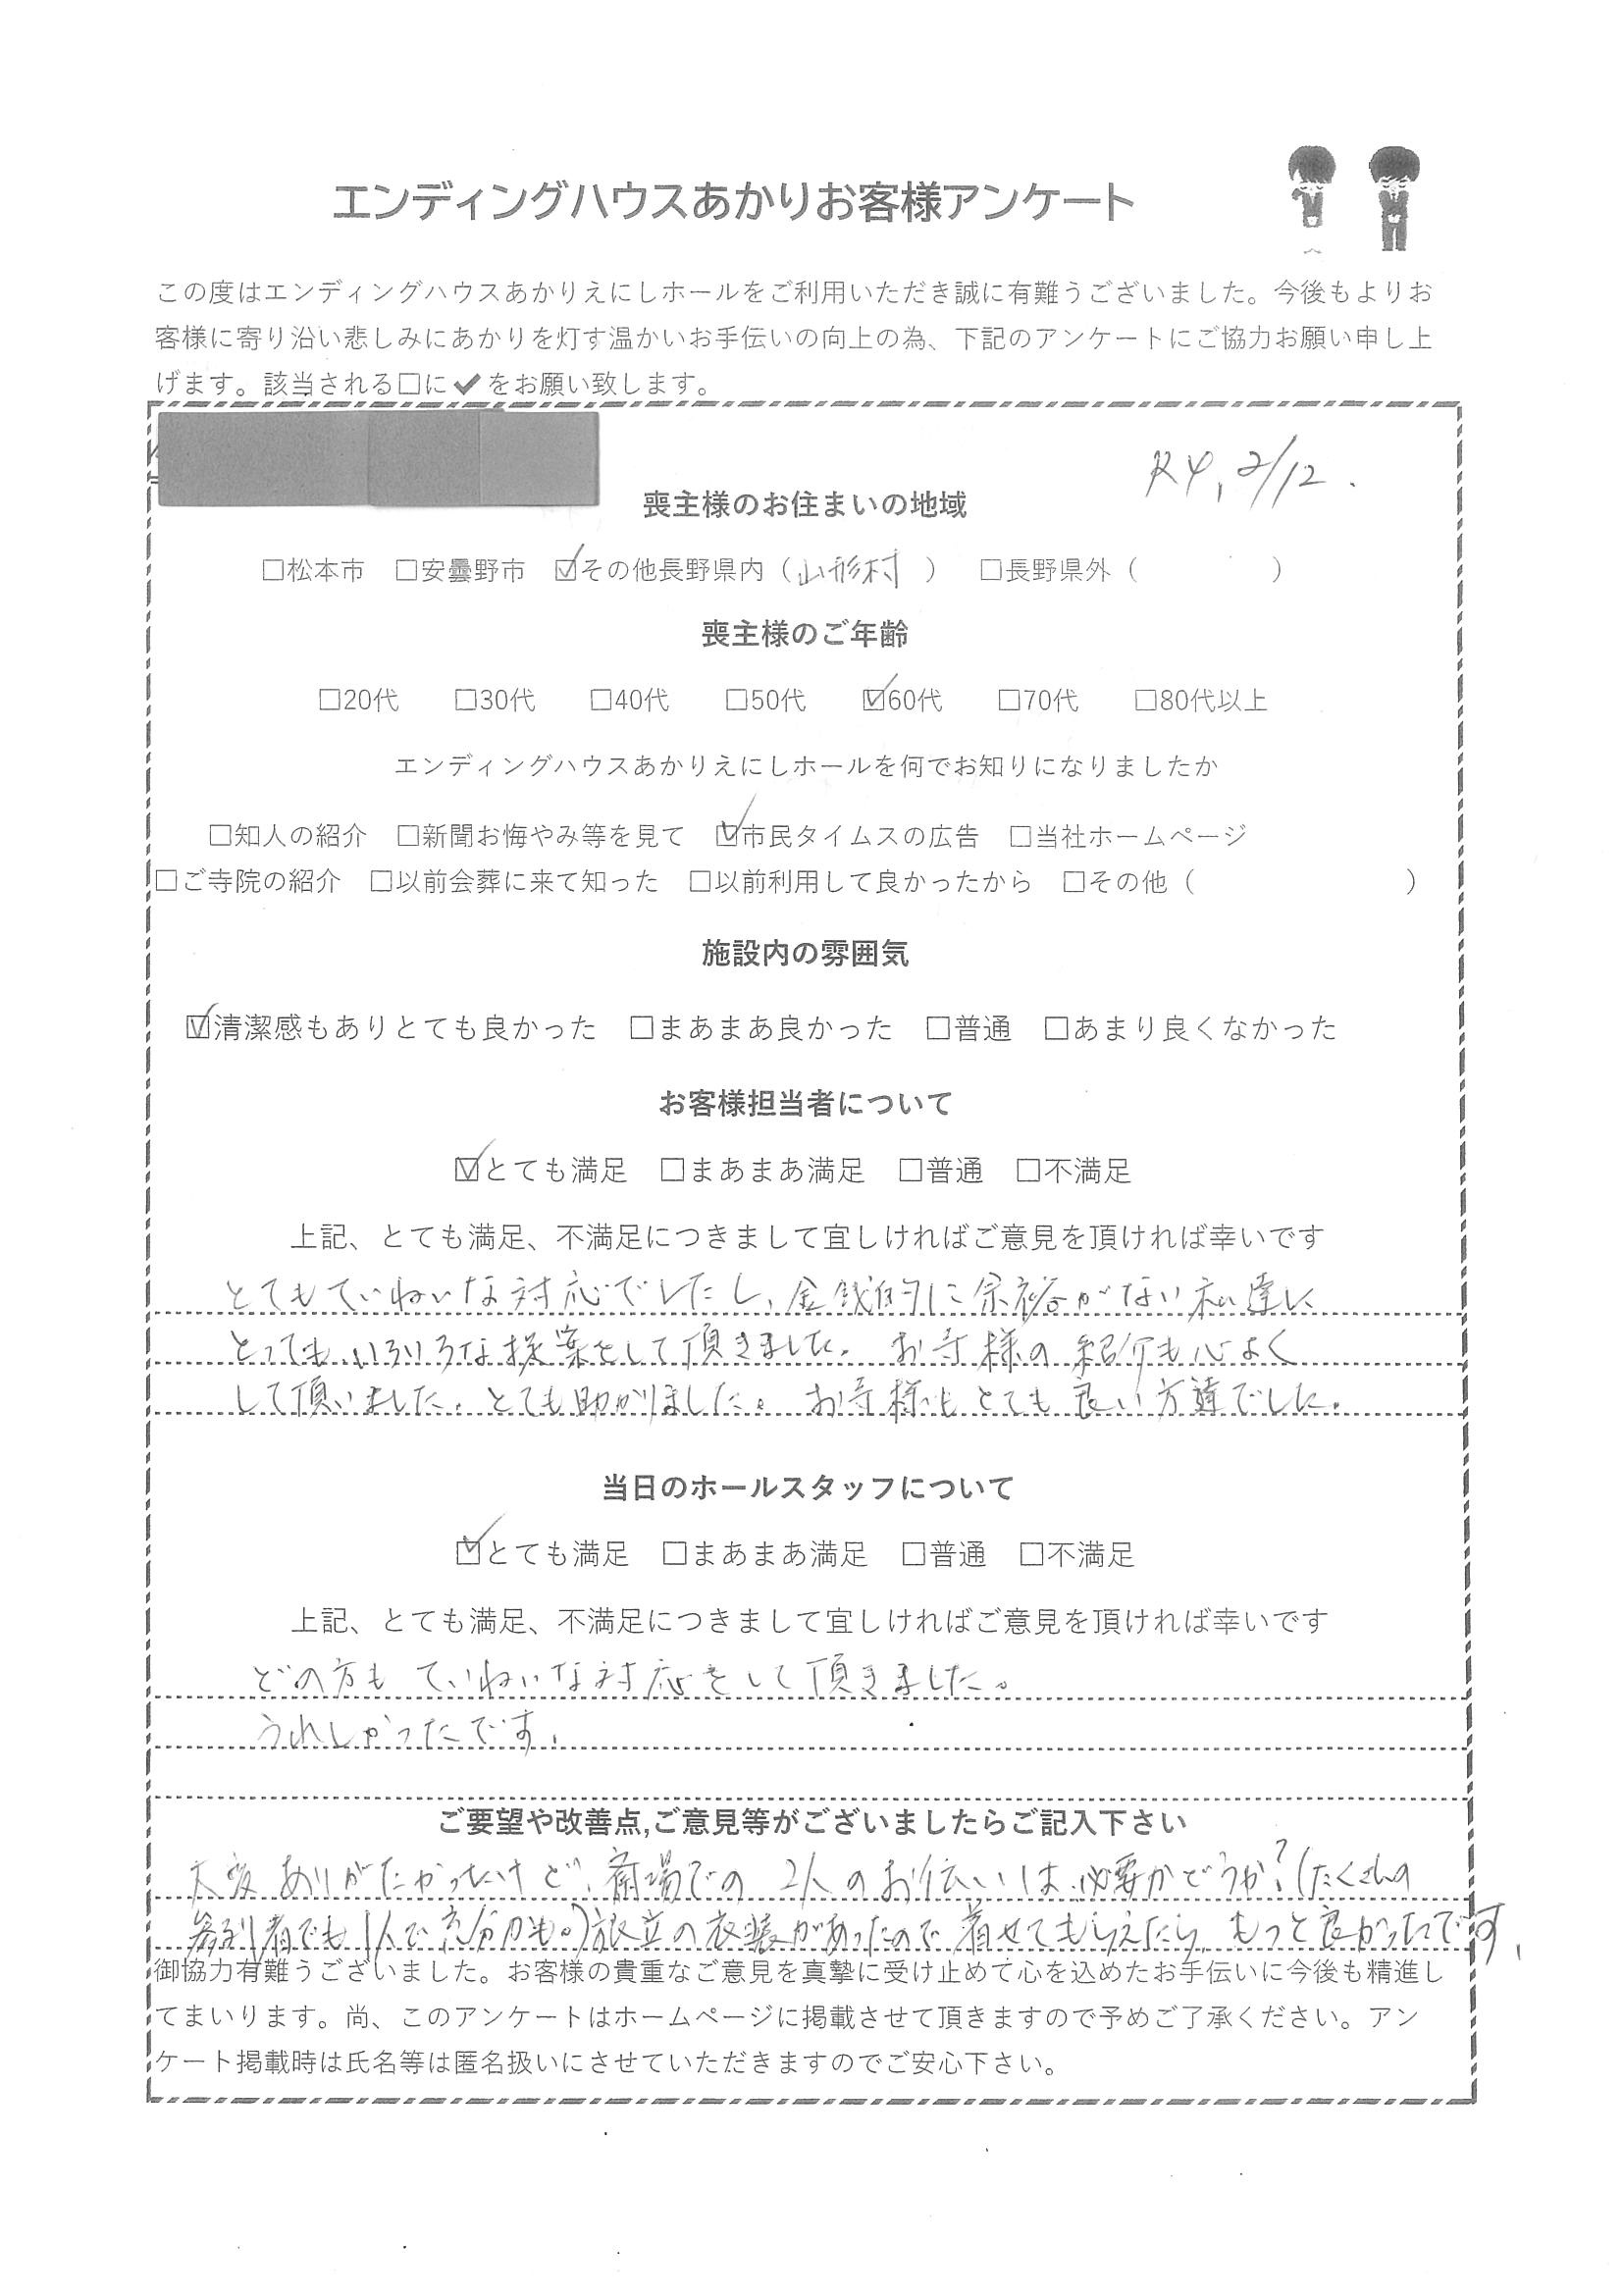 エンディングハウスあかりお客様アンケート
この度はエンディングハウスあかりえにしホールをご利用いただき誠に有難うございました。今後もよりお
客様に寄り沿い悲しみにあかりを灯す温かいお手伝いの向上の為、下記のアンケートにご協力お願い申し上
げます。該当される□に✔をお願い致します。
R4,2/12.
喪主様のお住まいの地域
□松本市 □安曇野市 ☑その他長野県内（山形村 ） □長野県外（ ）
喪主様のご年齢
□20代 □30代 □40代 □50代 ☑60代 □70代 □80代以上
エンディングハウスあかりえにしホールを何でお知りになりましたか
□知人の紹介 □新聞お悔やみ等を見て ☑市民タイムスの広告 □当社ホームページ
□ご寺院の紹介 □以前会葬に来て知った □以前利用して良かったから □その他（ ）
施設内の雰囲気
☑清潔感もありとても良かった □まあまあ良かった □普通 □あまり良くなかった
お客様担当者について
☑とても満足 □まあまあ満足 □普通 □不満足
上記、とても満足、不満足につきまして宜しければご意見を頂ければ幸いです
とてもていねいな対応でしたし、金銭的に余裕がない私達に
とっても、いろいろな提案をして頂きました。お寺様の紹介も心よく
して頂いました。とても助かりました。お寺様もとても良い方達でした。
当日のホールスタッフについて
☑とても満足 □まあまあ満足 □普通 □不満足
上記、とても満足、不満足につきまして宜しければご意見を頂ければ幸いです
どの方もていねいな対応をして頂きました。
うれしかったです。
ご要望や改善点,ご意見等がございましたらご記入下さい
大変ありがたかったけど、斎場での2人のお伝いは、必要かどうか?(たくさんの
参列者でも1人で充分かも。)旅立の衣装があったので着せてもらえたら、もっと良かったです。
御協力有難うございました。お客様の貴重なご意見を真摯に受け止めて心を込めたお手伝いに今後も精進し
てまいります。尚、このアンケートはホームページに掲載させて頂きますので予めご了承ください。アン
ケート掲載時は氏名等は匿名扱いにさせていただきますのでご安心下さい。